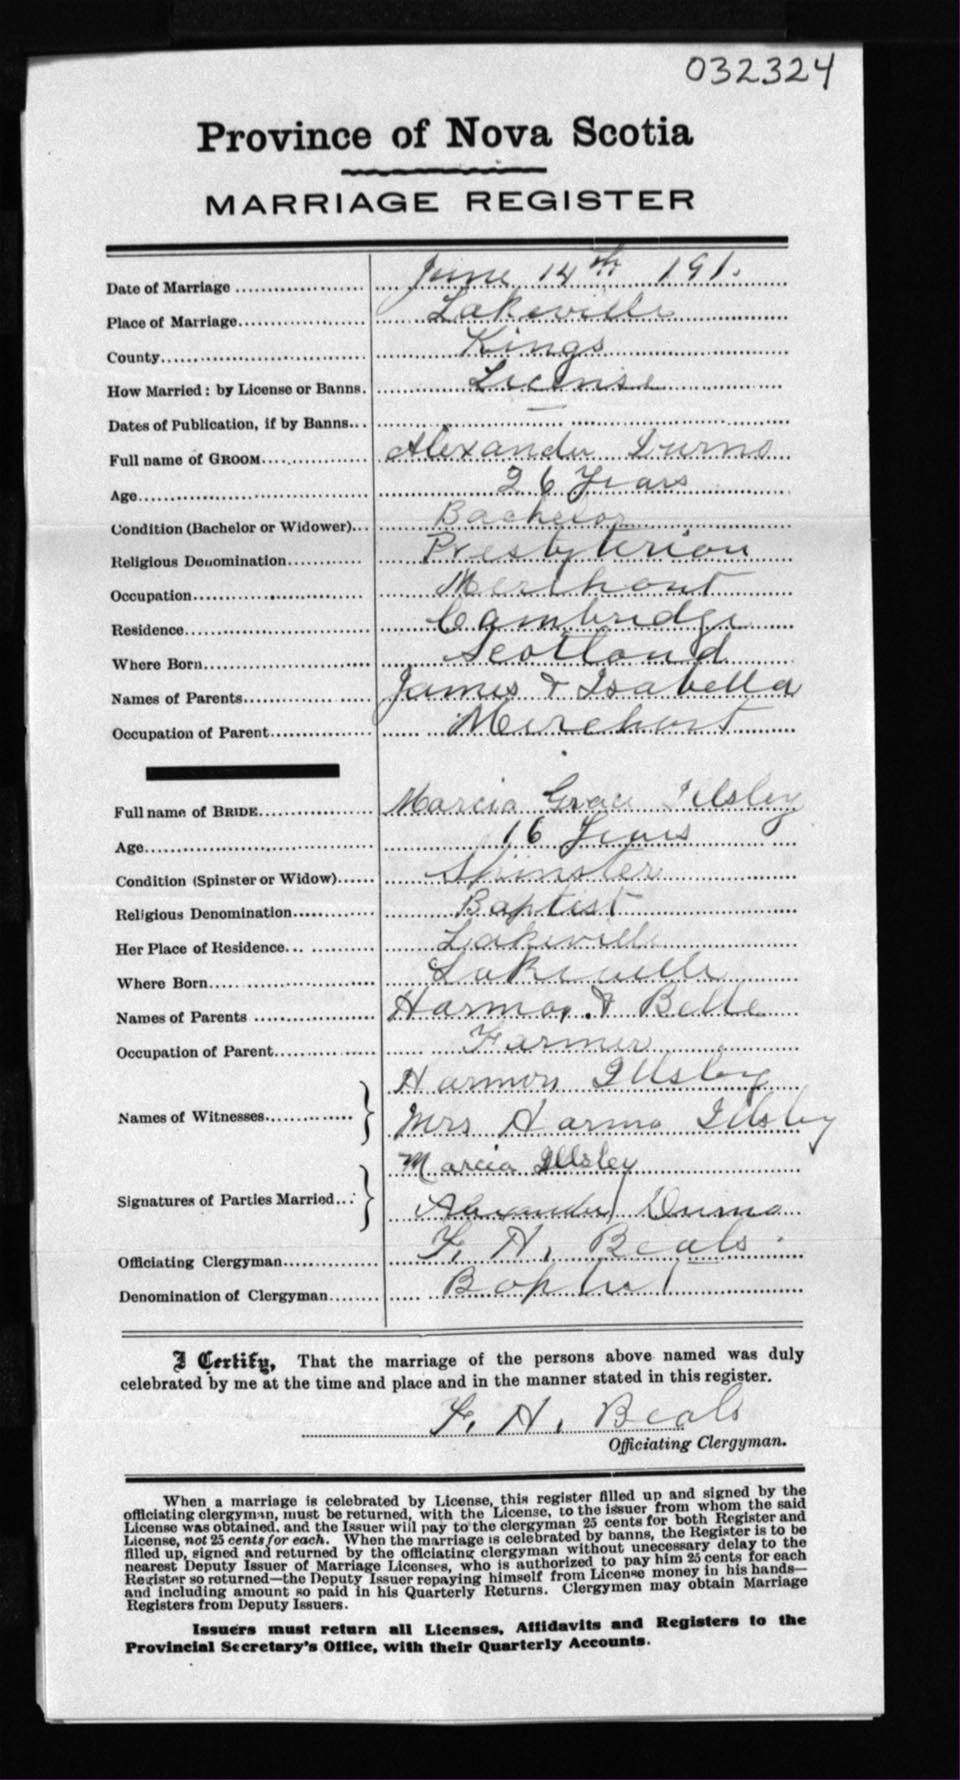 032324
Province of Nova Scotia
MARRIAGE REGISTER
Date of Marriage June 14th 191.
Place of Marriage Lakeville
County Kings
How Married: by License or Banns. License
Dates of Publication, if by Banns —
Full name of GROOM Alexander
Age 26 Years
Condition (Bachelor or Widower) Bachelor
Religious Denomination Presbyterian
Occupation Merchant
Residence Cambridge
Where Born Scotland
Names of Parents James & Isabella
Occupation of Parent Merchant
Full name of BRIDE Marcia Grace Illsley
Age 16 Years
Condition (Spinster or Widow) Spinster
Religious Denomination Baptist
Her Place of Residence Lakeville
Where Born Lakeville
Names of Parents Harmon & Belle
Occupation of Parent Farmer
Harmon Illsley
Names of Witnesses
Mrs Harmon Illsley
Marcia Illsley
Signatures of Parties Married
Alexander
Officiating Clergyman F. H. Beals
Denomination of Clergyman Baptist
I Certify, That the marriage of the persons above named was duly
celebrated by me at the time and place and in the manner stated in this register.
F. H. Beals
Officiating Clergyman.
When a marriage is celebrated by License, this register filled up and signed by the
officiating clergyman, must be returned, with the License, to the issuer from whom the said
License was obtained, and the Issuer will pay to the clergyman 25 cents for both Register and
License, not 25 cents for each. When the marriage is celebrated by banns, the Register is to be
filled up, signed and returned by the officiating clergyman without unecessary delay to the
nearest Deputy Issuer of Marriage Licenses, who is authorized to pay him 25 cents for each
Register so returned—the Deputy Issuer repaying himself from License money in his hands—
and including amount so paid in his Quarterly Returns. Clergymen may obtain Marriage
Registers from Deputy Issuers.
Issuers must return all Licenses, Affidavits and Registers to the
Provincial Secretary's Office, with their Quarterly Accounts.